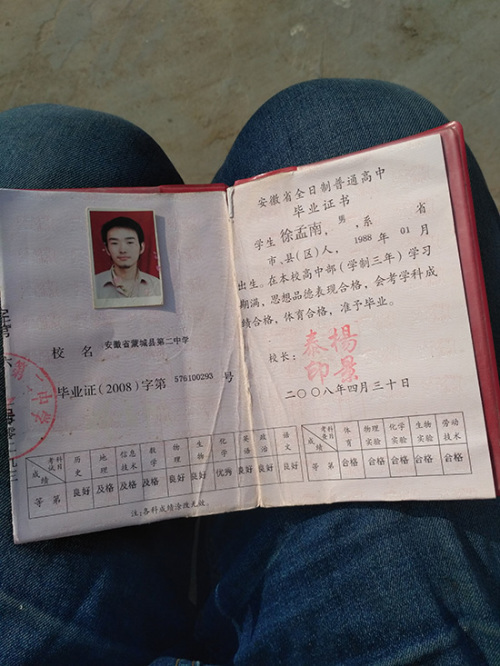 校 名 安徽省蒙城县第二中学
毕业证(2008)字第 576100293 号
考试科目 成绩 历史 地理 信息技术 数学 物理 生物 化学 英语 政治 语文
等 第 良好 及格 及格 及格 良好 良好 优秀 良好 良好 良好
注:各科成绩涂改无效。
安徽省全日制普通高中
毕业证书
学生 徐孟南,男,系 省
市、县(区)人,1988 年 01 月
出生。在本校高中部(学制三年)学习
期满,思想品德表现合格,会考学科成
绩合格,体育合格,准予毕业。
校长:
楊景泰印
二〇〇八年四月三十日
成绩 体育 物理实验 化学实验 生物实验 劳动技术
等 第 合格 合格 合格 合格 合格